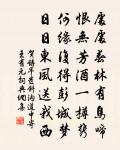 處處春林有鳥啼
恨無芳酒一樽攜
何緣復得彭城夢
日日東風送我西